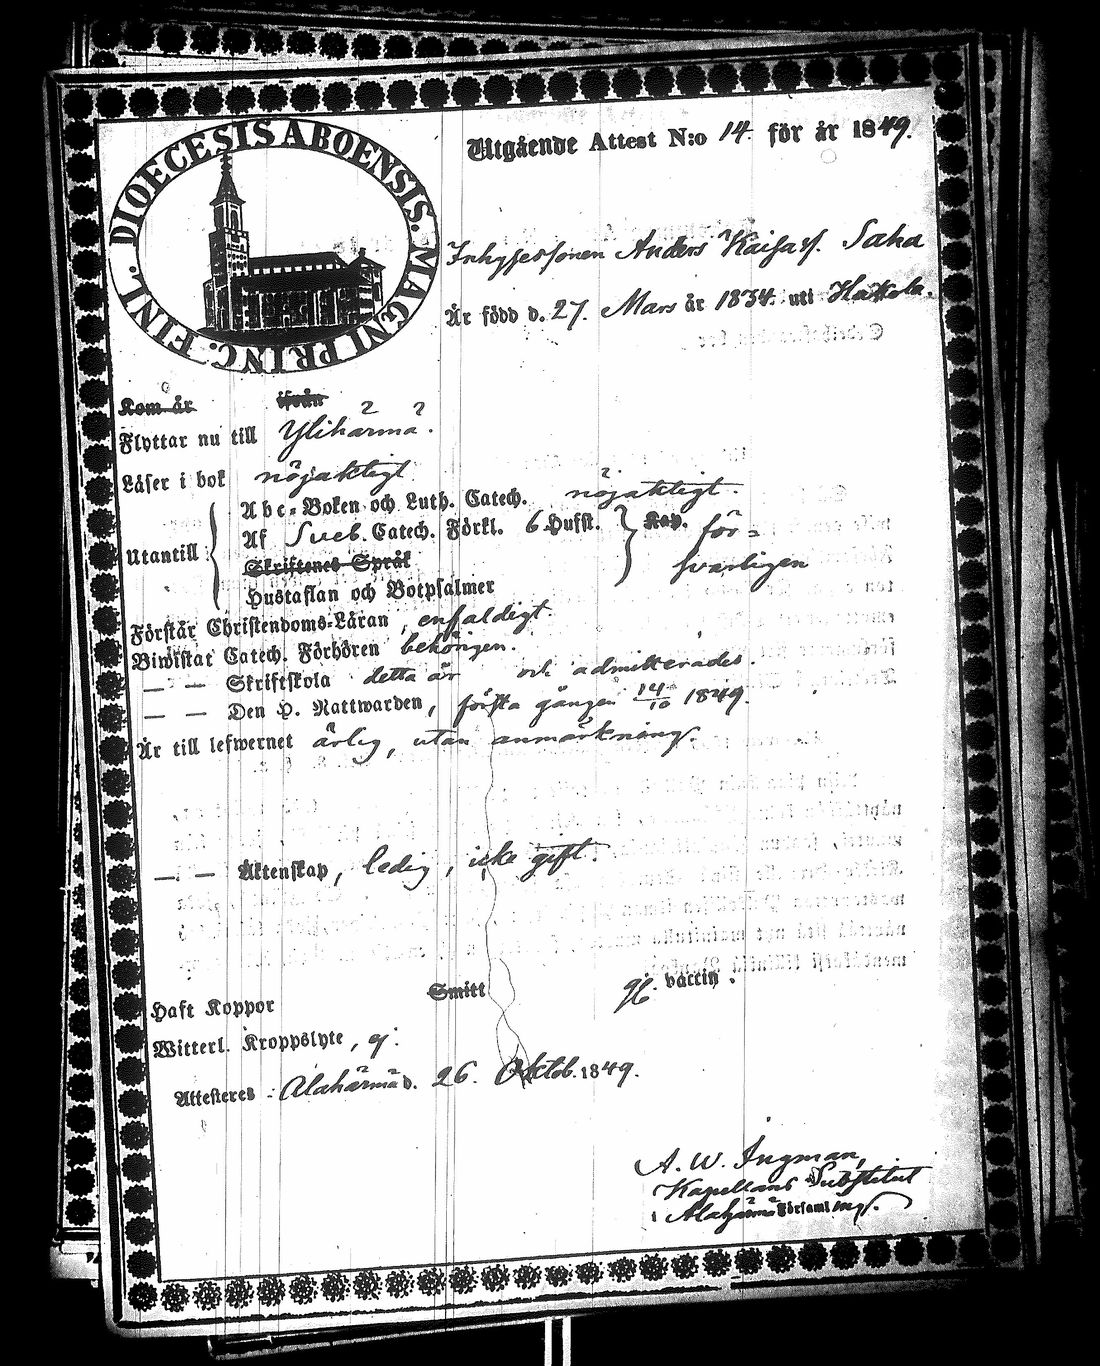 DIOECESIS ABOENSIS. MAGNI PRINC. FINL.
Utgående Attest N:o 14 för år 1849.
Inhysessonen Anders Kaisas. Saha
Är född d. 27. Mars år 1834. uti Hakola.
Kom år ifrån
Flyttar nu till Ylihärmä.
Läser i bok nöjaktigt
Utantill
Abc-Boken och Luth. Catech. nöjaktigt.
Af Sveb. Catech. Förkl. 6 Hufst. Kap. för-
Skriftenes Språk svarligen
Hustaflan och Botpsalmer
Förstår Christendoms-Läran, enfaldigt
Biwistat Catech. Förhören behörigen.
— — Skriftskola detta år och admitterades.
— — Den H. Nattwarden, första gången 14/10 1849.
Är till lefwernet ärlig, utan anmärkning.
— — Äktenskap, ledig, icke gift.
Haft Koppor Smitt vaccin.
Witterl. Kroppslyte, ej.
Attesteres Alahärmä d. 26. Oktob. 1849.
A. W. Ingman,
Kapellans Substitut
i Alahärmä Församling.